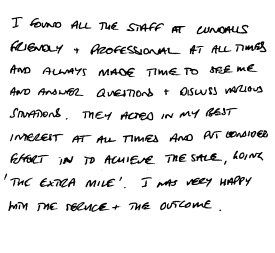 I FOUND ALL THE STAFF AT CUNDALLS
FRIENDLY + PROFESSIONAL AT ALL TIMES
AND ALWAYS MADE TIME TO SEE ME
AND ANSWER QUESTIONS + DISCUSS VARIOUS
SITUATIONS. THEY ACTED IN MY BEST
INTEREST AT ALL TIMES AND PUT CONSIDERED
EFFORT IN TO ACHIEVE THE SALE, GOING
'THE EXTRA MILE'. I WAS VERY HAPPY
WITH THE SERVICE + THE OUTCOME.